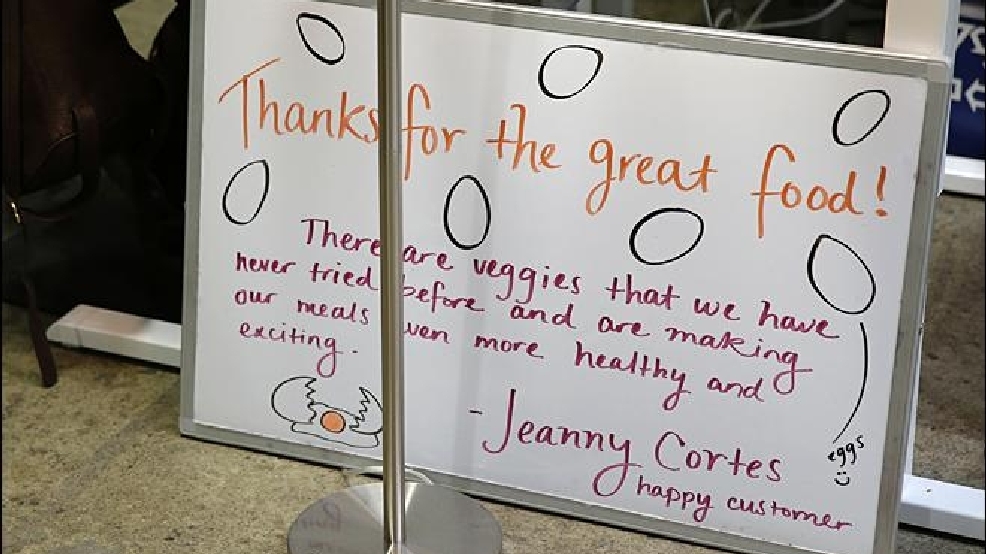 Thanks for the great food!
There are veggies that we have
never tried before and are making
our meals even more healthy and
exciting.
-Jeanny Cortes
happy customer
eggs